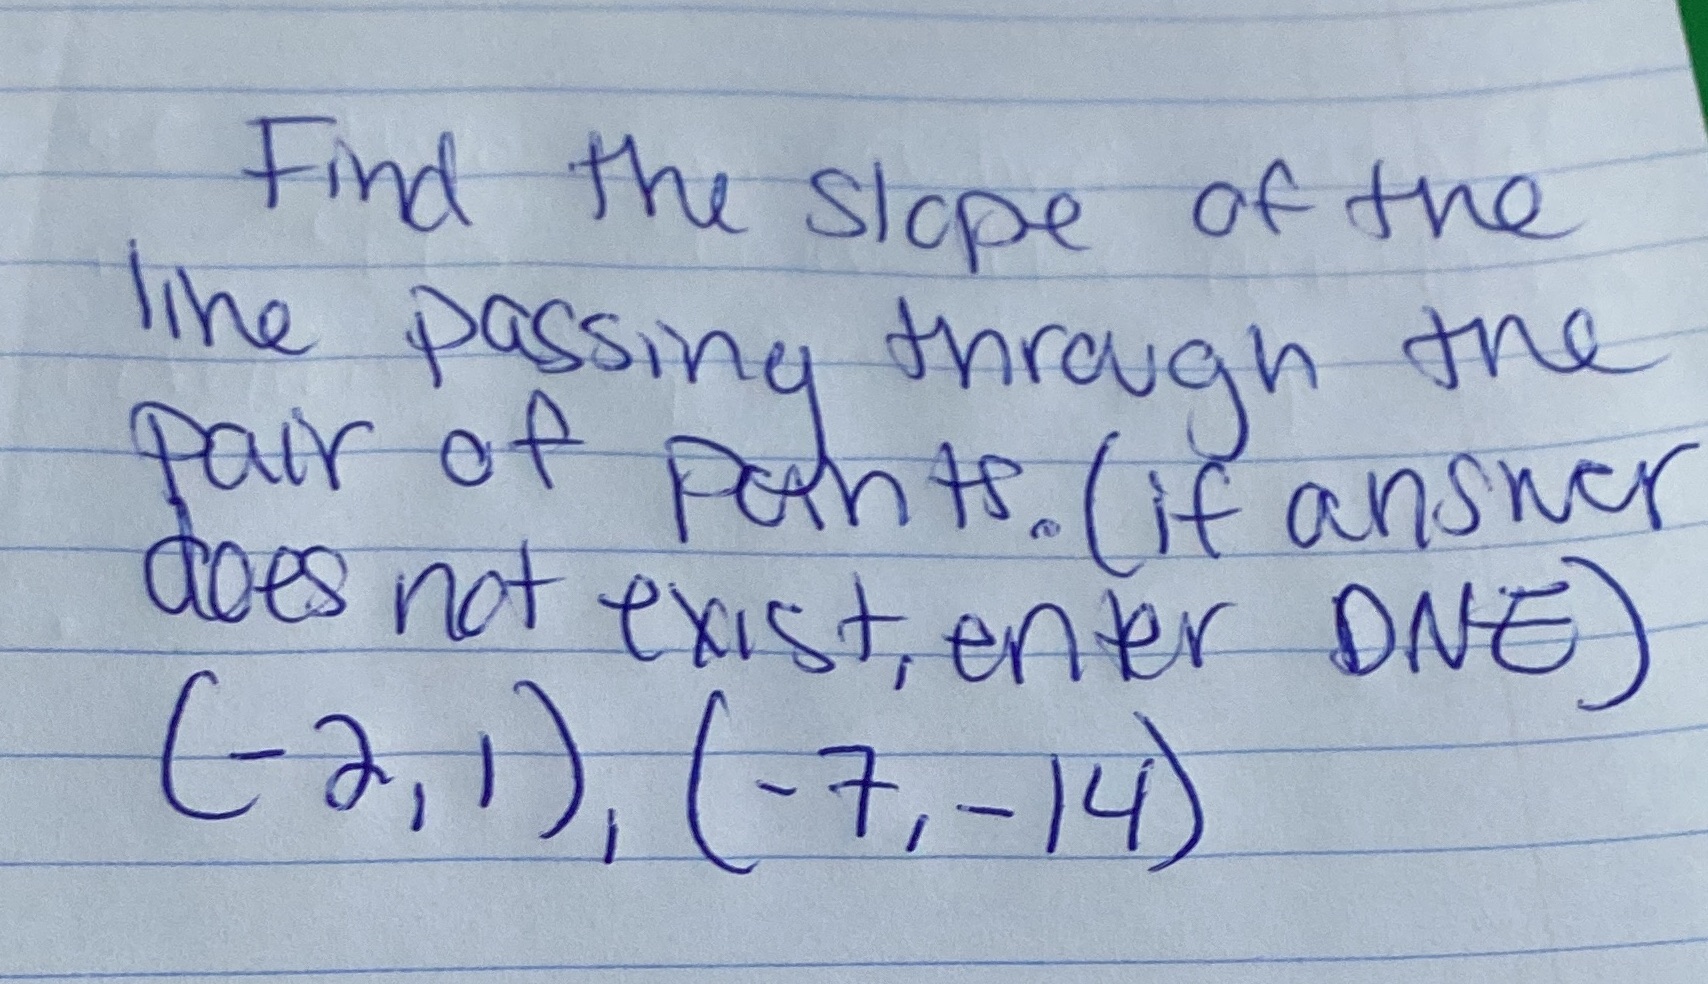 Find the slope of the
line passing through the
pair of points. (if answer
does not exist, enter DNE)
(-2, 1), (-7, -14)